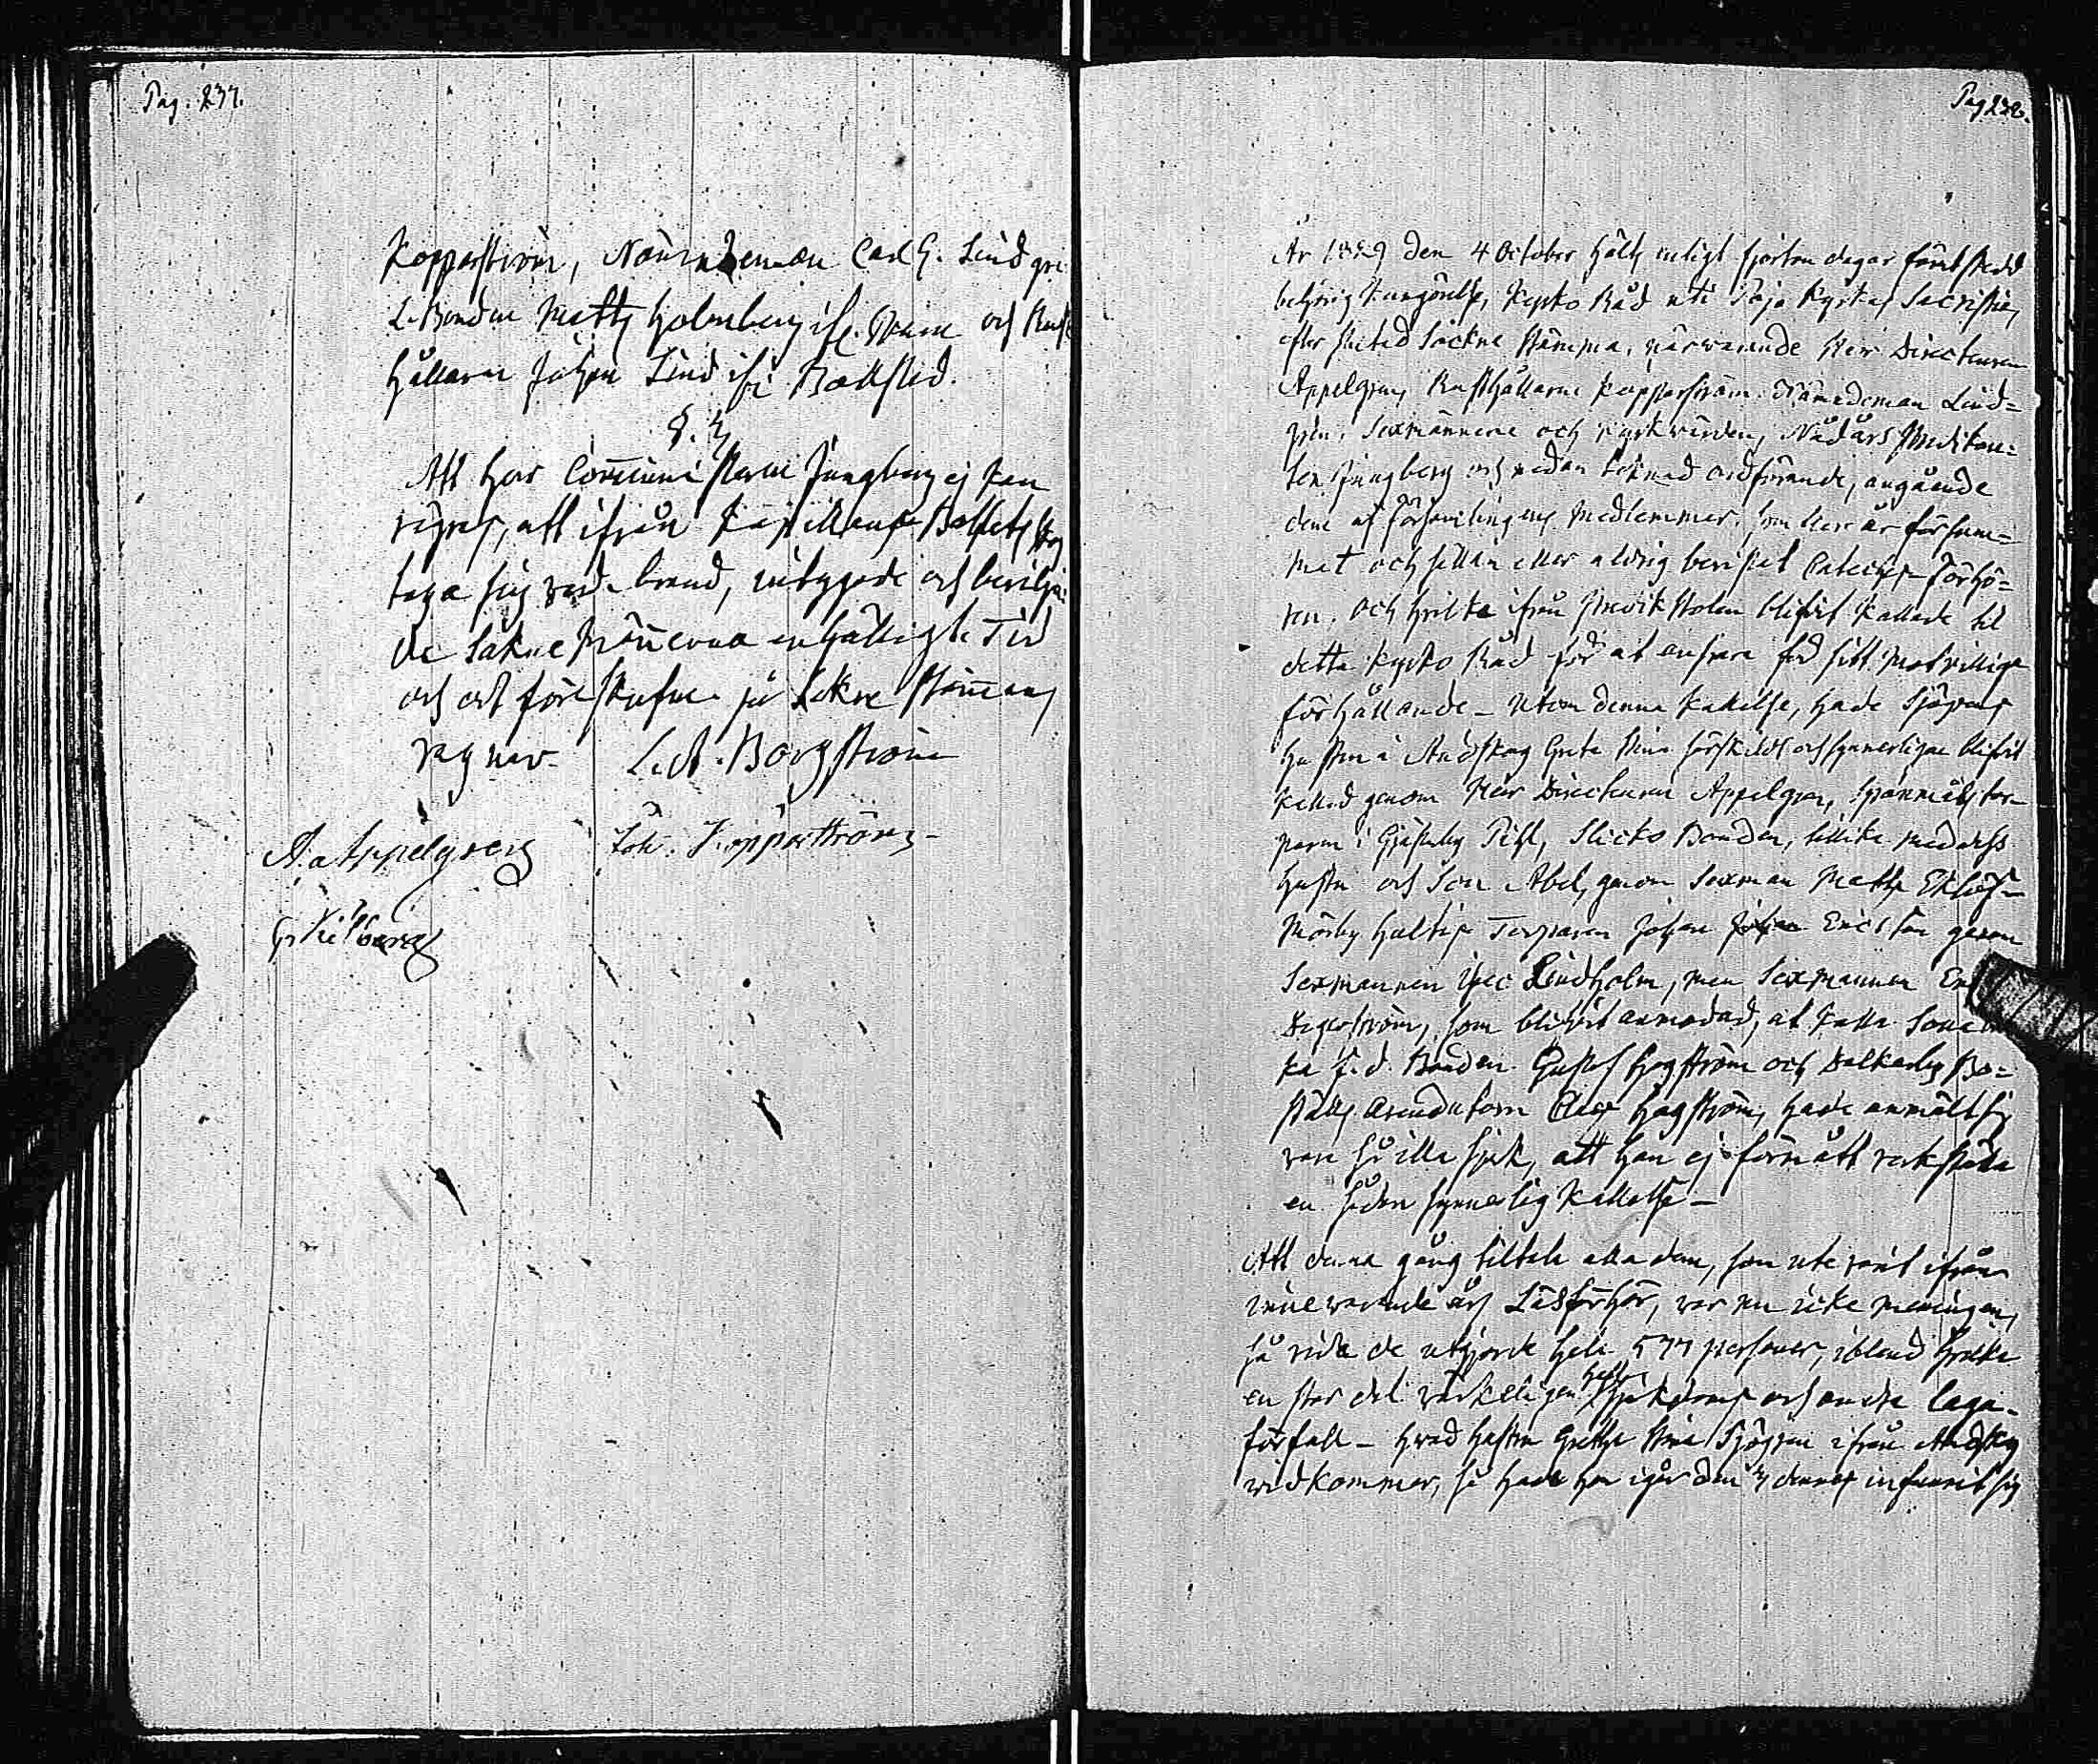 Pag. 237.
Kopparström, Nämndeman Carl G. Lindgre
L. Bonden Matts Holmberg och Rust
hållaren Johan Lind ifr Backsted.
§. 3
Att herr Comminister Ljungberg ej kan
vägras, att ifrån Capellans Bostets skog
taga sig ved brand, intygade och bevilja
de Sokne männerna enhälligt. Tid
och ort föreskrefne på Sokne Stämman
vagnar L. A. Borgström
A. a Appelgren Joh. Kopparström
G. Kihlberg
Pag 238.
År 1829 den 4 October hölts enligt fjorton dagar förut skedd
behörig kungörelse, Kyrko Råd uti Poja Kyrkas Sacristia,
efter slutad Sockne stämma, närwarande Herr Directeuren
Appelgren, Rusthållarne Kopparström. Nämndeman Lind=
gren. Sexmännerne och kyrkvärden, Nådårs Predikan=
ten Ljungberg och nedan teknad ordförande, angående
dem af Församlingens Medlemmar, som flere år försum=
mat och sällan eller aldrig bevistat Cateches Förhö=
ren, och hvilka ifrån Predikstolen blifvit kallade til
detta Kyrko Råd för at ansvara för sitt motvilliga
förhållande – Utom denna kallelse, hade Sjögrens
hustru i Andskog Greta Stina särskildt och synnerligen blifvit
kallad genom Herr Directeuren Appelgren, Spannmåls tor=
paren i Gjäsarby Pihl, Slicko Bonden, tillika med dess
hustru och Son Abel, genom Sexman Matts Eklöf –
Mörby Hultis Torparen Johan Ericsson genom
Sexmannen Lindholm, men Sexmannen Er
Segerström, som blifvit anmodad, at kalla Sonab
ka f. d. Bonden Gustaf Hogström och Dalkarby Bo=
ställs Arendatorn Hogström, hade anmält sig
vara så illa sjuk, att han ej förmått verkställa
en sådan synnerlig kallelse –
Att denna gång tilltala alla dem, som ute varit ifrån
innewarande års Läsförhör, var nu icke meningen,
så vida de utgjorde hela 577 personer, ibland hvilka
en stor del verkeligen haft sjukdoms och andra laga
förfall – hvad hustru Gretha Stina Sjögren ifrån Andskog
widkommer, så hade hon igår den 3 dennes infunnit sig